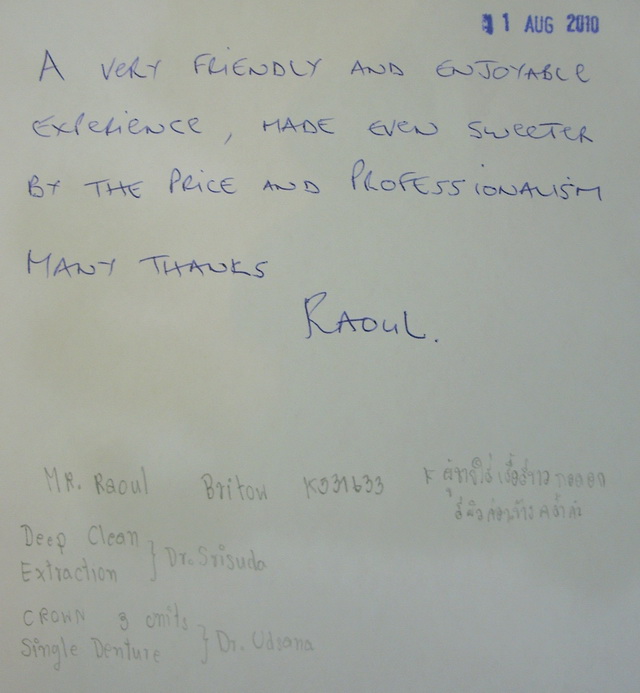 1 AUG 2010
A VERY FRIENDLY AND ENJOYABLE
EXPERIENCE, MADE EVEN SWEETER
BY THE PRICE AND PROFESSIONALISM
MANY THANKS
RAOUL.
MR. Raoul Britow K031633
Deep Clean
Extraction } Dr. Srisuda
CROWN 3 units
Single Denture } Dr. Udsana